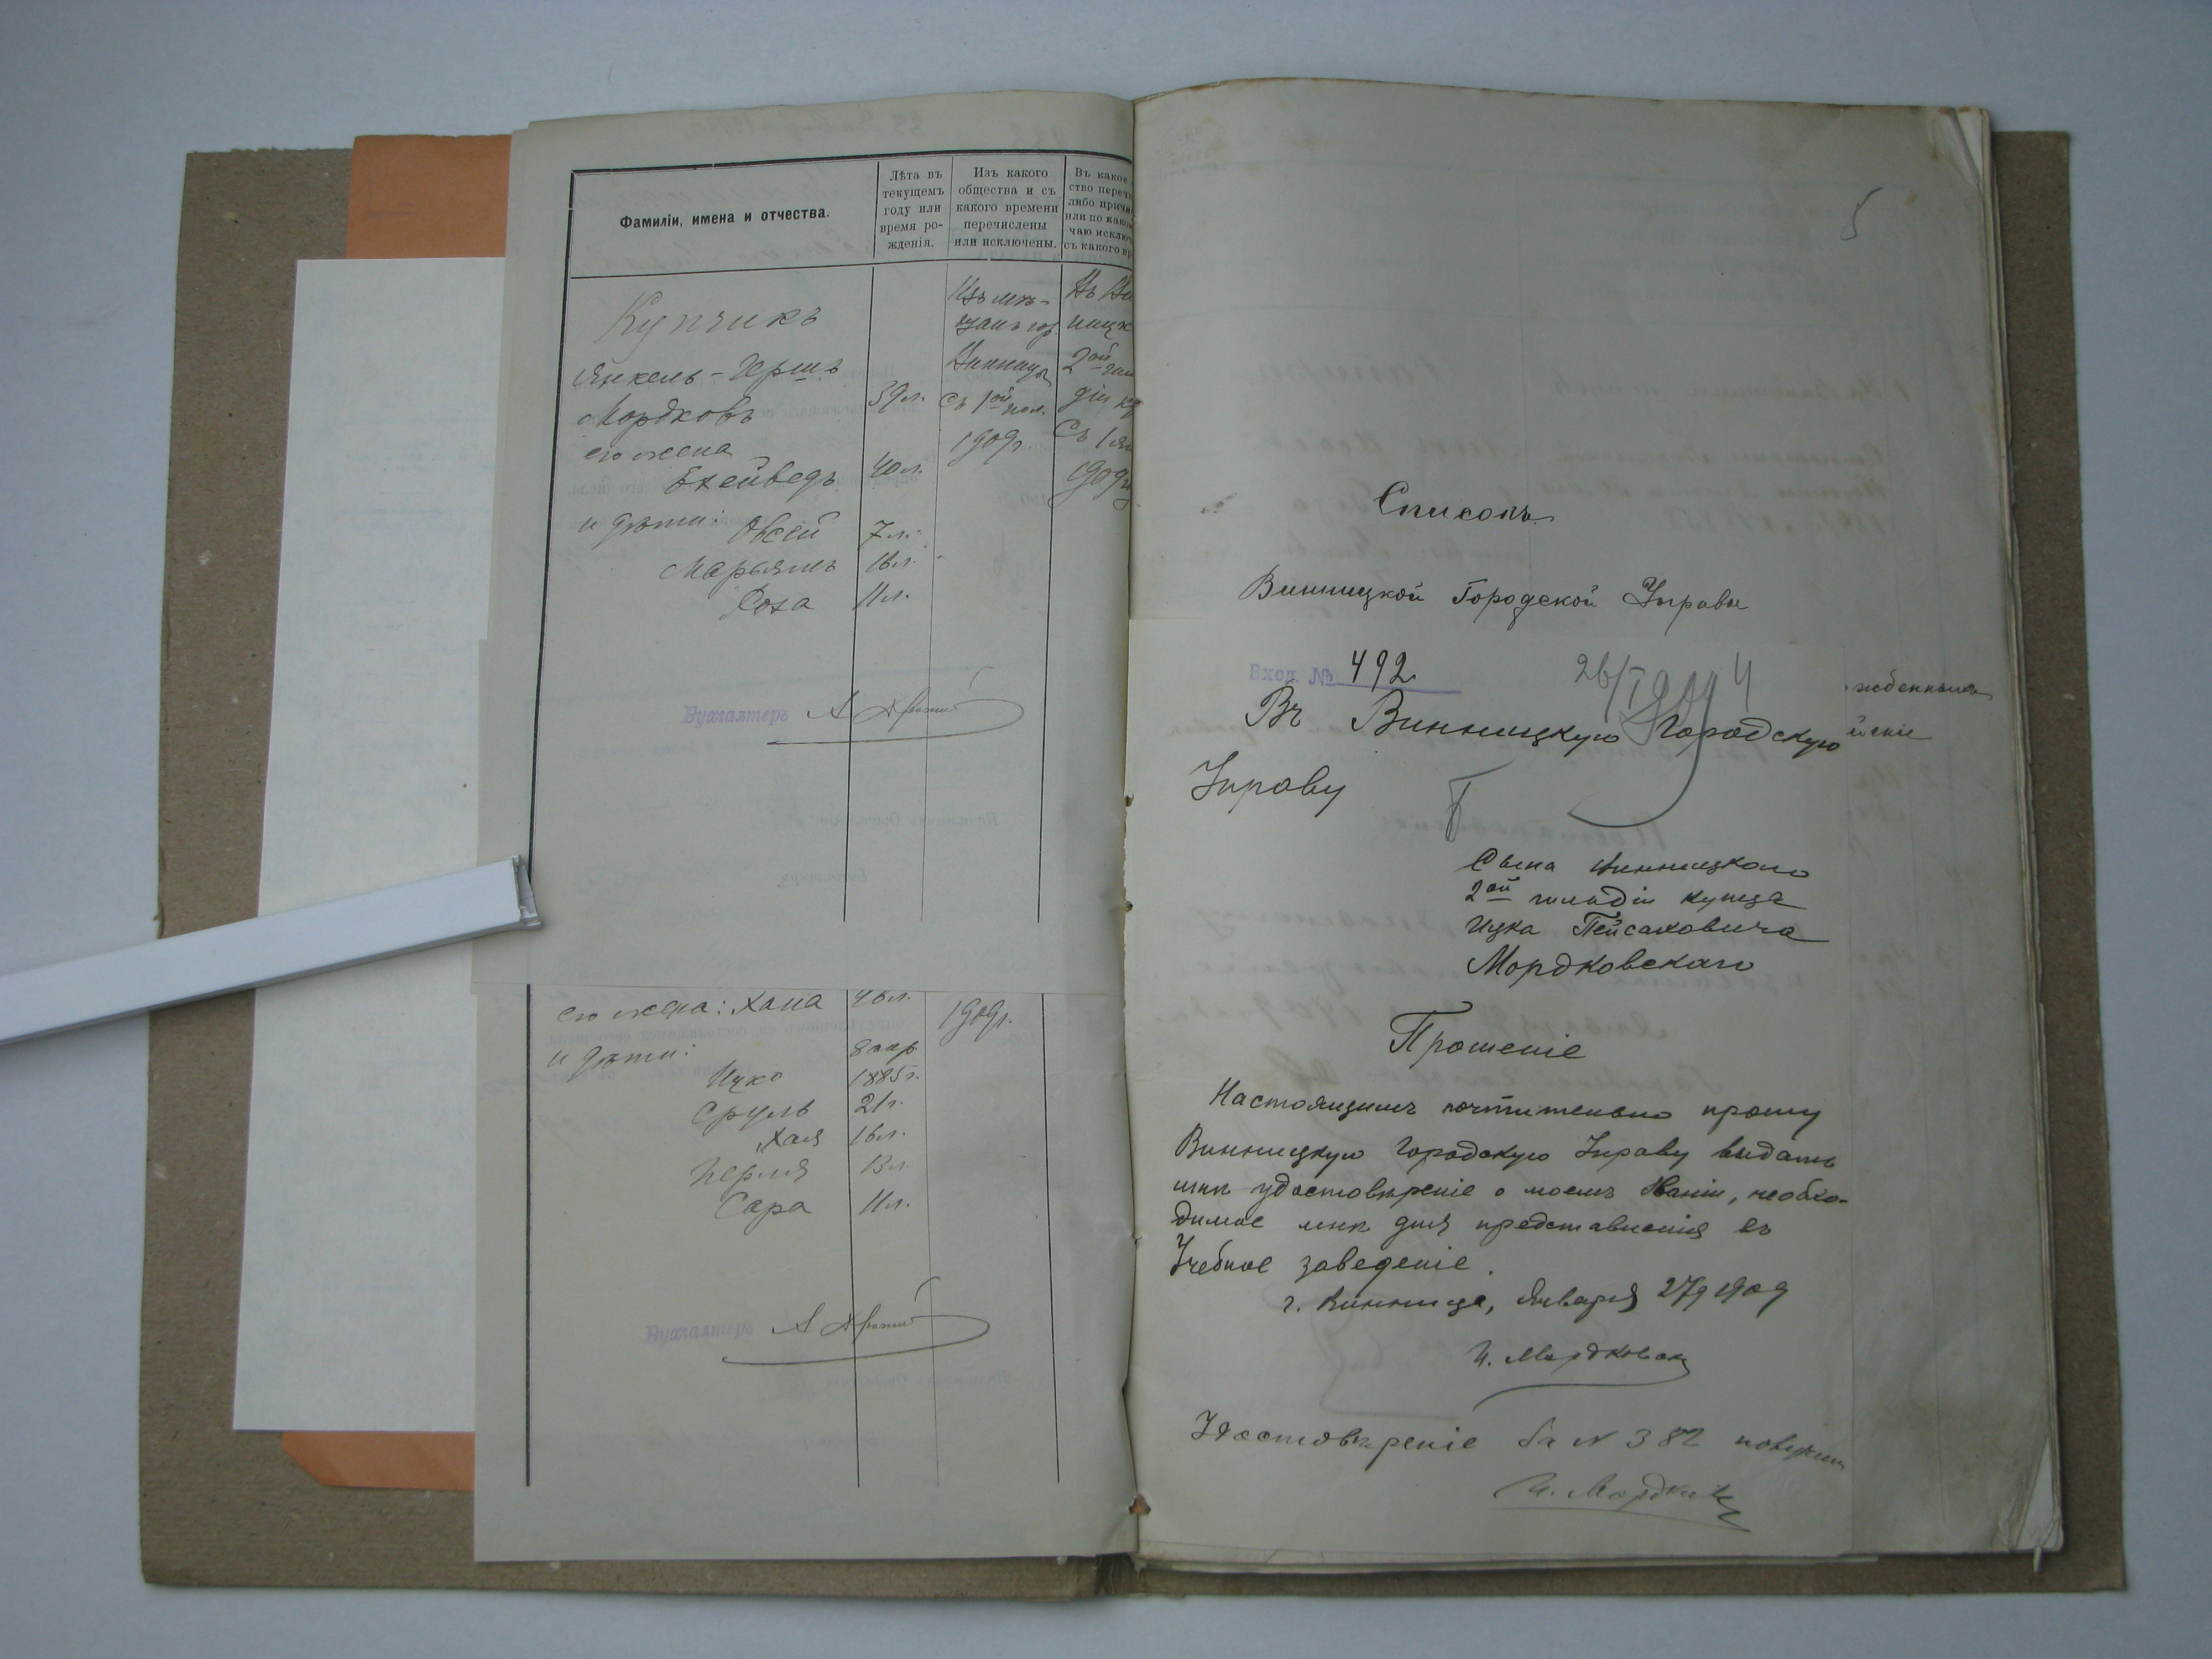 Фамиліи, имена и отчества.
Лѣта въ
текущемъ
году или
время ро-
жденія.
Изъ какого
общества и съ
какого времени
перечислены
или исключены.
Въ какое
ство переч
либо причи
или по каком
чаю исклю
съ какого вр
Купчикъ
Янкель-Герш.ъ
Мордковъ
39 л.
его жена
Бхейведъ
40 л.
и дѣти: Овсей 7 л.
Марьямъ 16 л.
Роха 11 л.
Изъ мѣ-
щанъ гор.
Винницы
Съ 1ой пол.
1909 г.
Въ Ви
ницк
2ой гил
діи ку
Съ 1 ян
1909 г
Бухгалтеръ
его жена: Хана 46 л.
1909 г.
и дѣти:
8 апр
Ицко 1885 г.
Сруль 21 г.
Хая 16 л.
Перля 13 л.
Сара 11 л.
Бухгалтеръ
5
Списокъ
Винницкой Городской Управы
жденныхъ
йскіе
Вход. № 492
26/I 1909 4
Въ Винницкую Городскую
Управу
Сына Винницкаго
2ой гильдіи купца
Ицка Пейсаховича
Мордковскаго
Прошеніе
Настоящимъ почтительно прошу
Винницкую Городскую Управу выдать
мнѣ удостовѣреніе о моемъ званіи, необхо-
димое мнѣ для представленія въ
Учебное заведеніе.
г. Винница, Января 27 д 1909
И. Мордковск
Удостовѣреніе за N 382 получилъ
И. Мордков